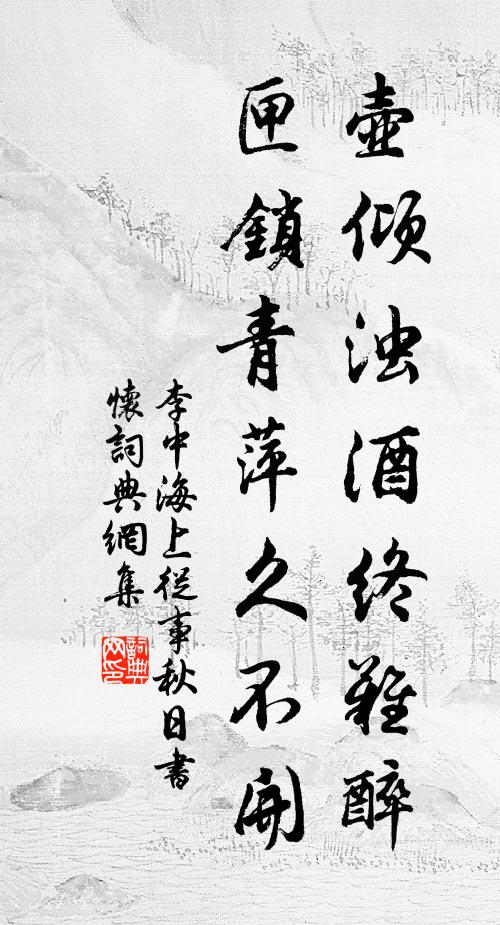 壺倾浊酒终難醉
匣鎖青萍久不開
李中海上從事秋日書
懷詞典網集
詞典网印